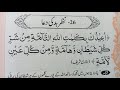 26- نظرِ بد کی دعا
أُعِيذُكَ بِكَلِمَاتِ اللهِ التَّامَّةِ مِنْ شَرِّ
كُلِّ شَيْطَانٍ وَّهَامَّةٍ وَّمِنْ كُلِّ عَيْنٍ